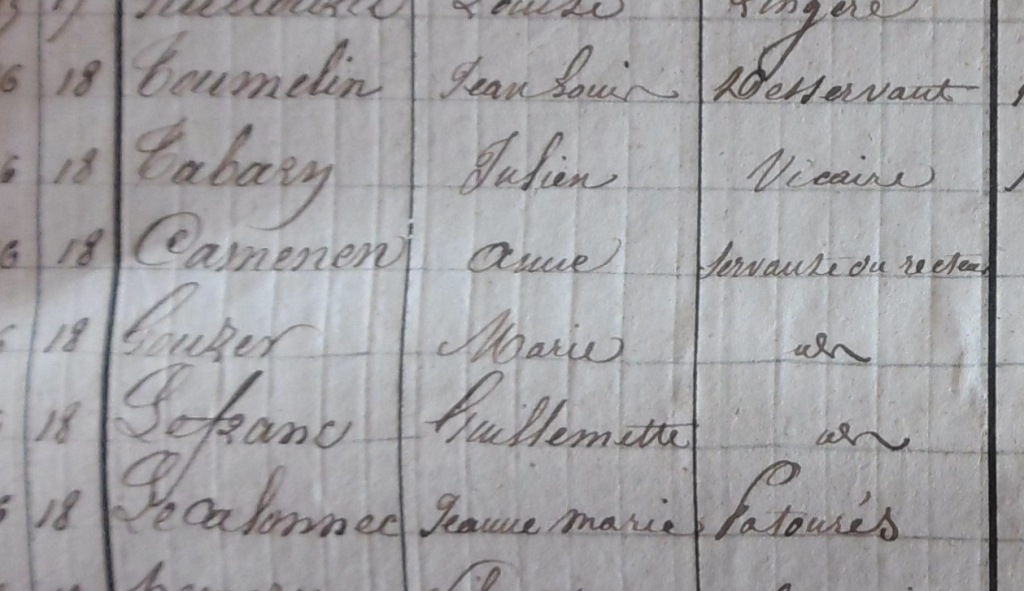 Louise Lingère
6 18 Toumelin Jean Louis Desservant
6 18 Tabary Julien Vicaire
6 18 Camenen anne servante du recteur
18 Gouzer Marie idem
18 Lefranc Guillemette idem
6 18 Le calonnec Jeanne marie